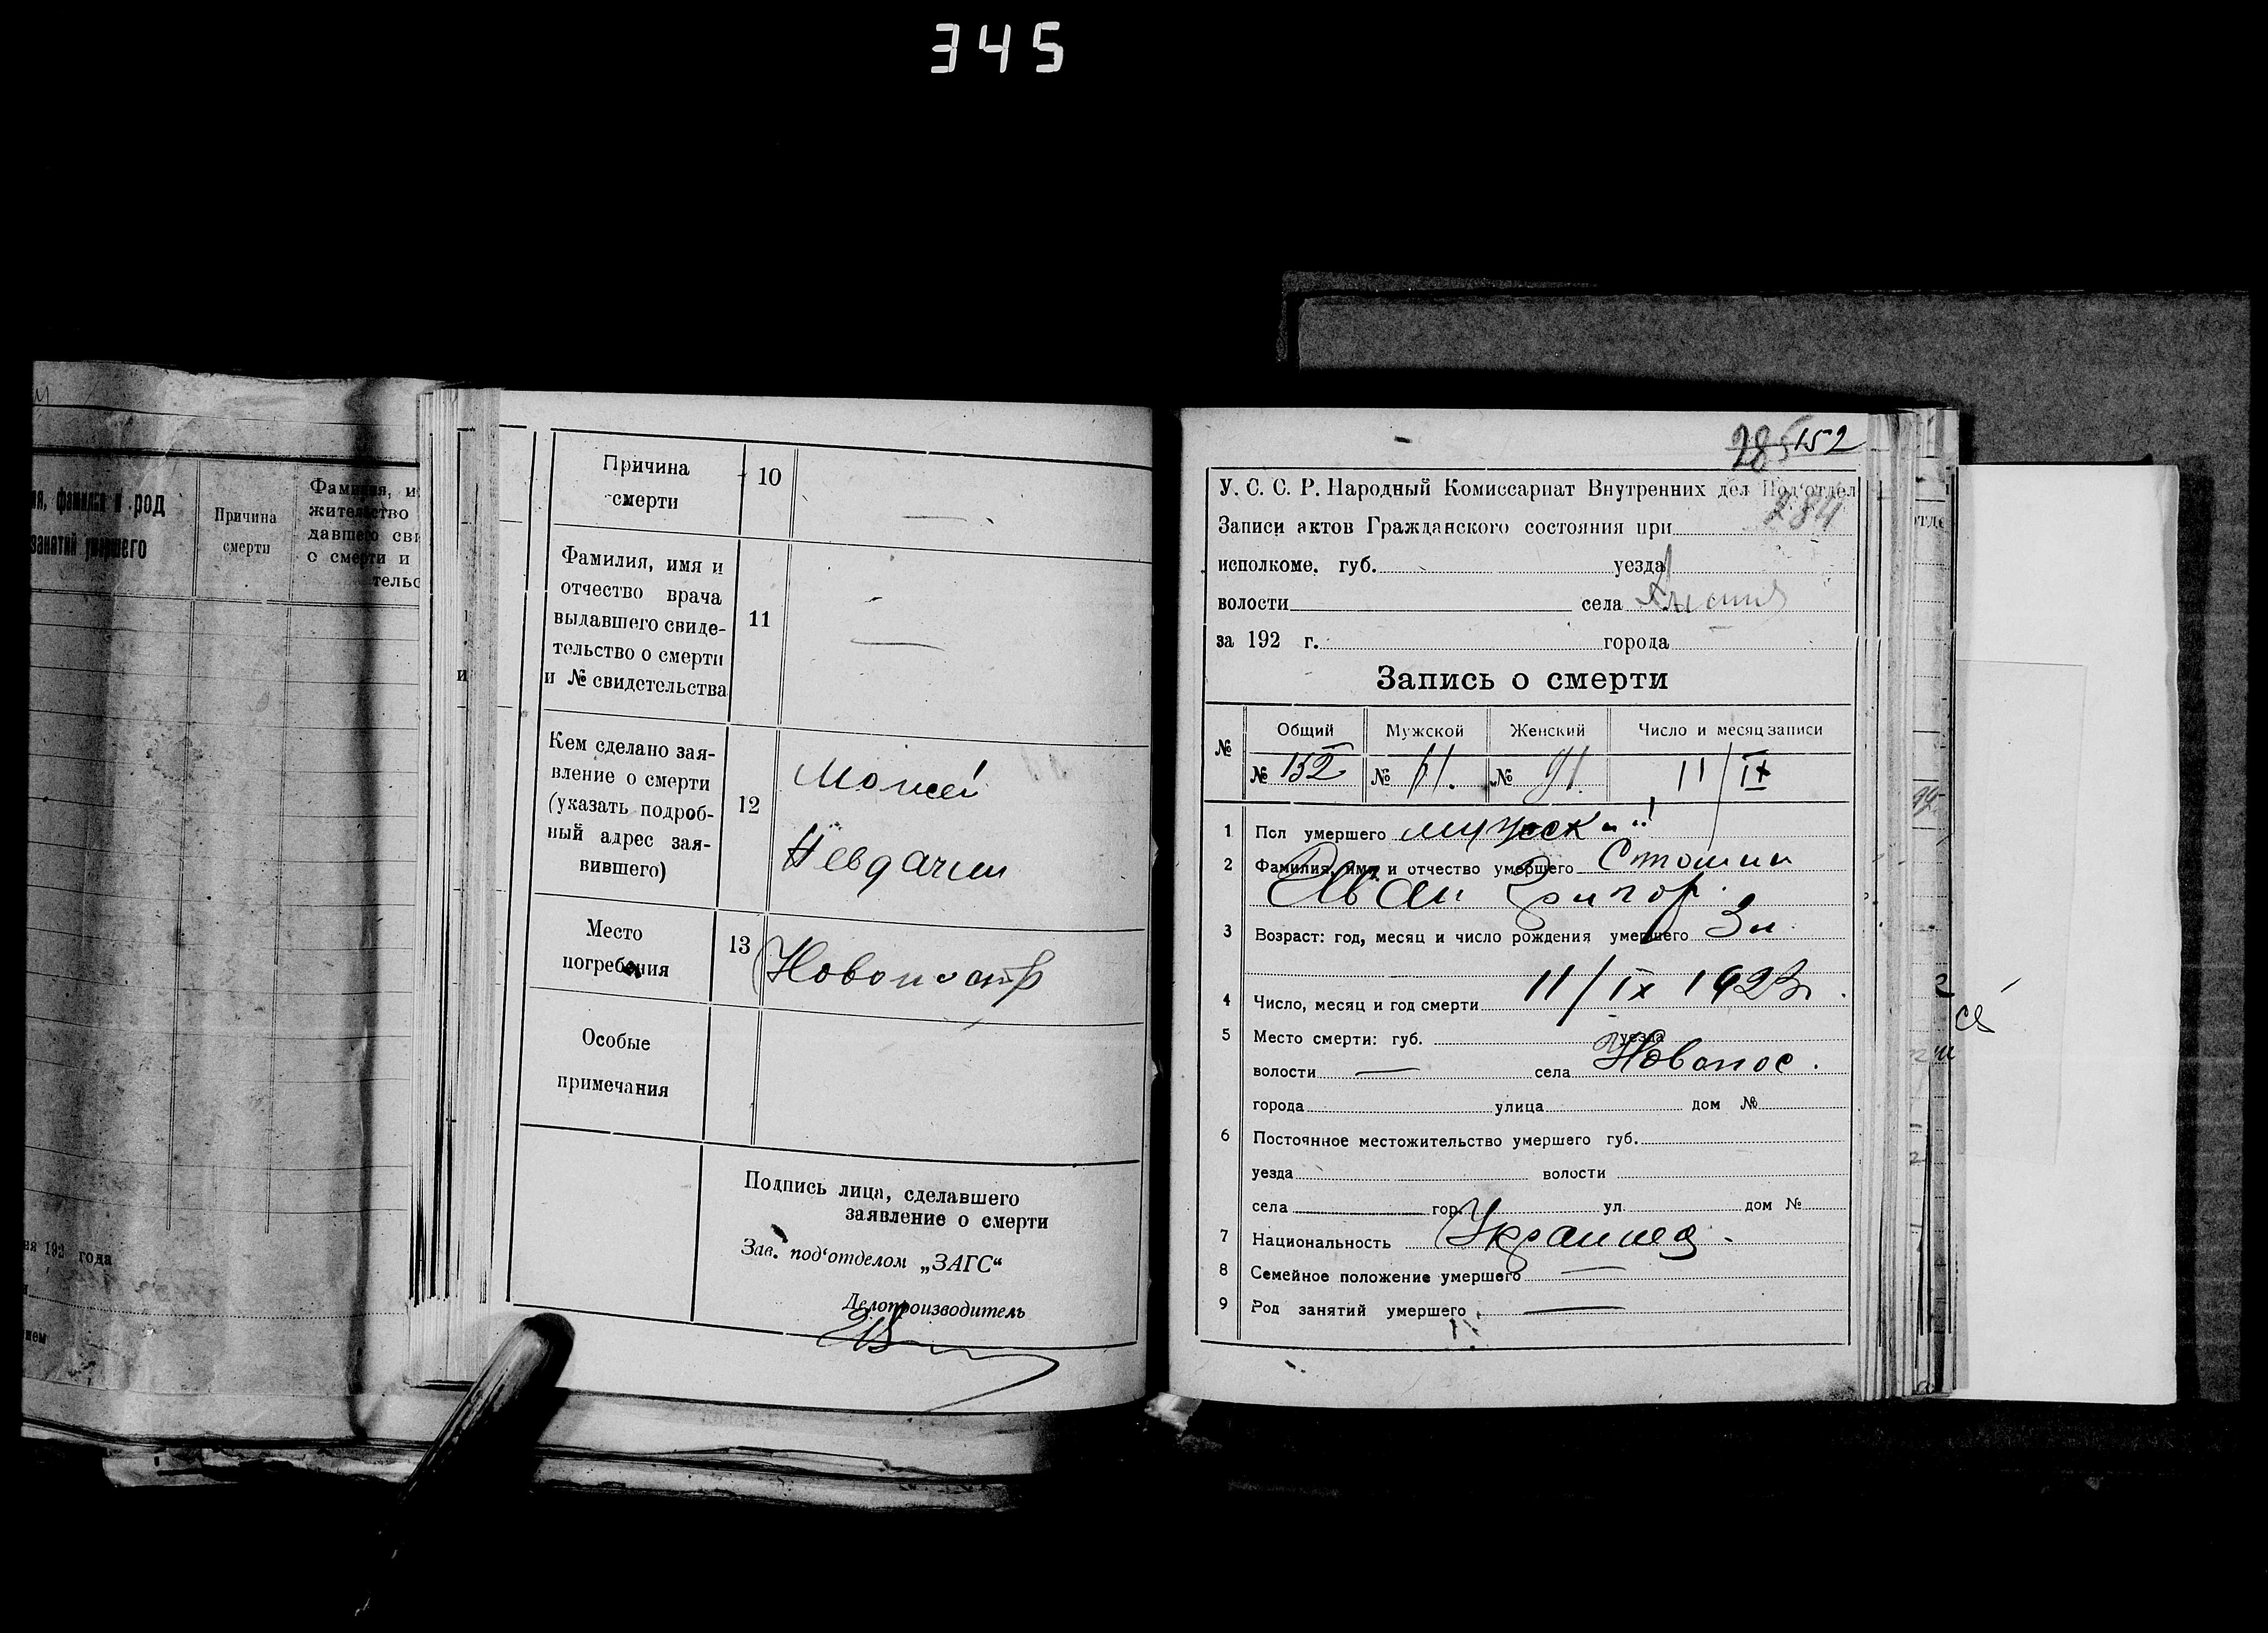 345
род
занятий умершего
Причина
смерти
Фамилия, и
жительство
давшего сви
о смерти и
тельс
192 года
Причина
смерти
10
—
Фамилия, имя и
отчество врача
выдавшего свиде-
тельство о смерти
и № свидетельства
11
—
Кем сделано зая-
вление о смерти
(указать подроб-
ный адрес зая-
вившего)
12
Невдачин
Место
погребения
13
Особые
примечания
Подпись лица, сделавшего
заявление о смерти
Зав. под‘отделом „ЗАГС“
Делопроизводитель
285 152
У. С. С. Р. Народный Комиссариат Внутренних дел Под‘отдел
284
Записи актов Гражданского состояния при
исполкоме. губ. уезда
волости села
за 192 г. города
Запись о смерти
№ Общий Мужской Женский Число и месяц записи
№ 152 № 61. № 91. 11/IX
1 Пол умершего мужской
2 Фамилия, имя и отчество умершего
Иван Григор.
3 Возраст: год, месяц и число рождения умершего
4 Число, месяц и год смерти 11/IX 1923г.
5 Место смерти: губ. уезда
волости — села Новопос.
города улица дом №
6 Постоянное местожительство умершего губ.
уезда волости
села гор. ул. дом №
7 Национальность Украинец.
8 Семейное положение умершего —
9 Род занятий умершего —